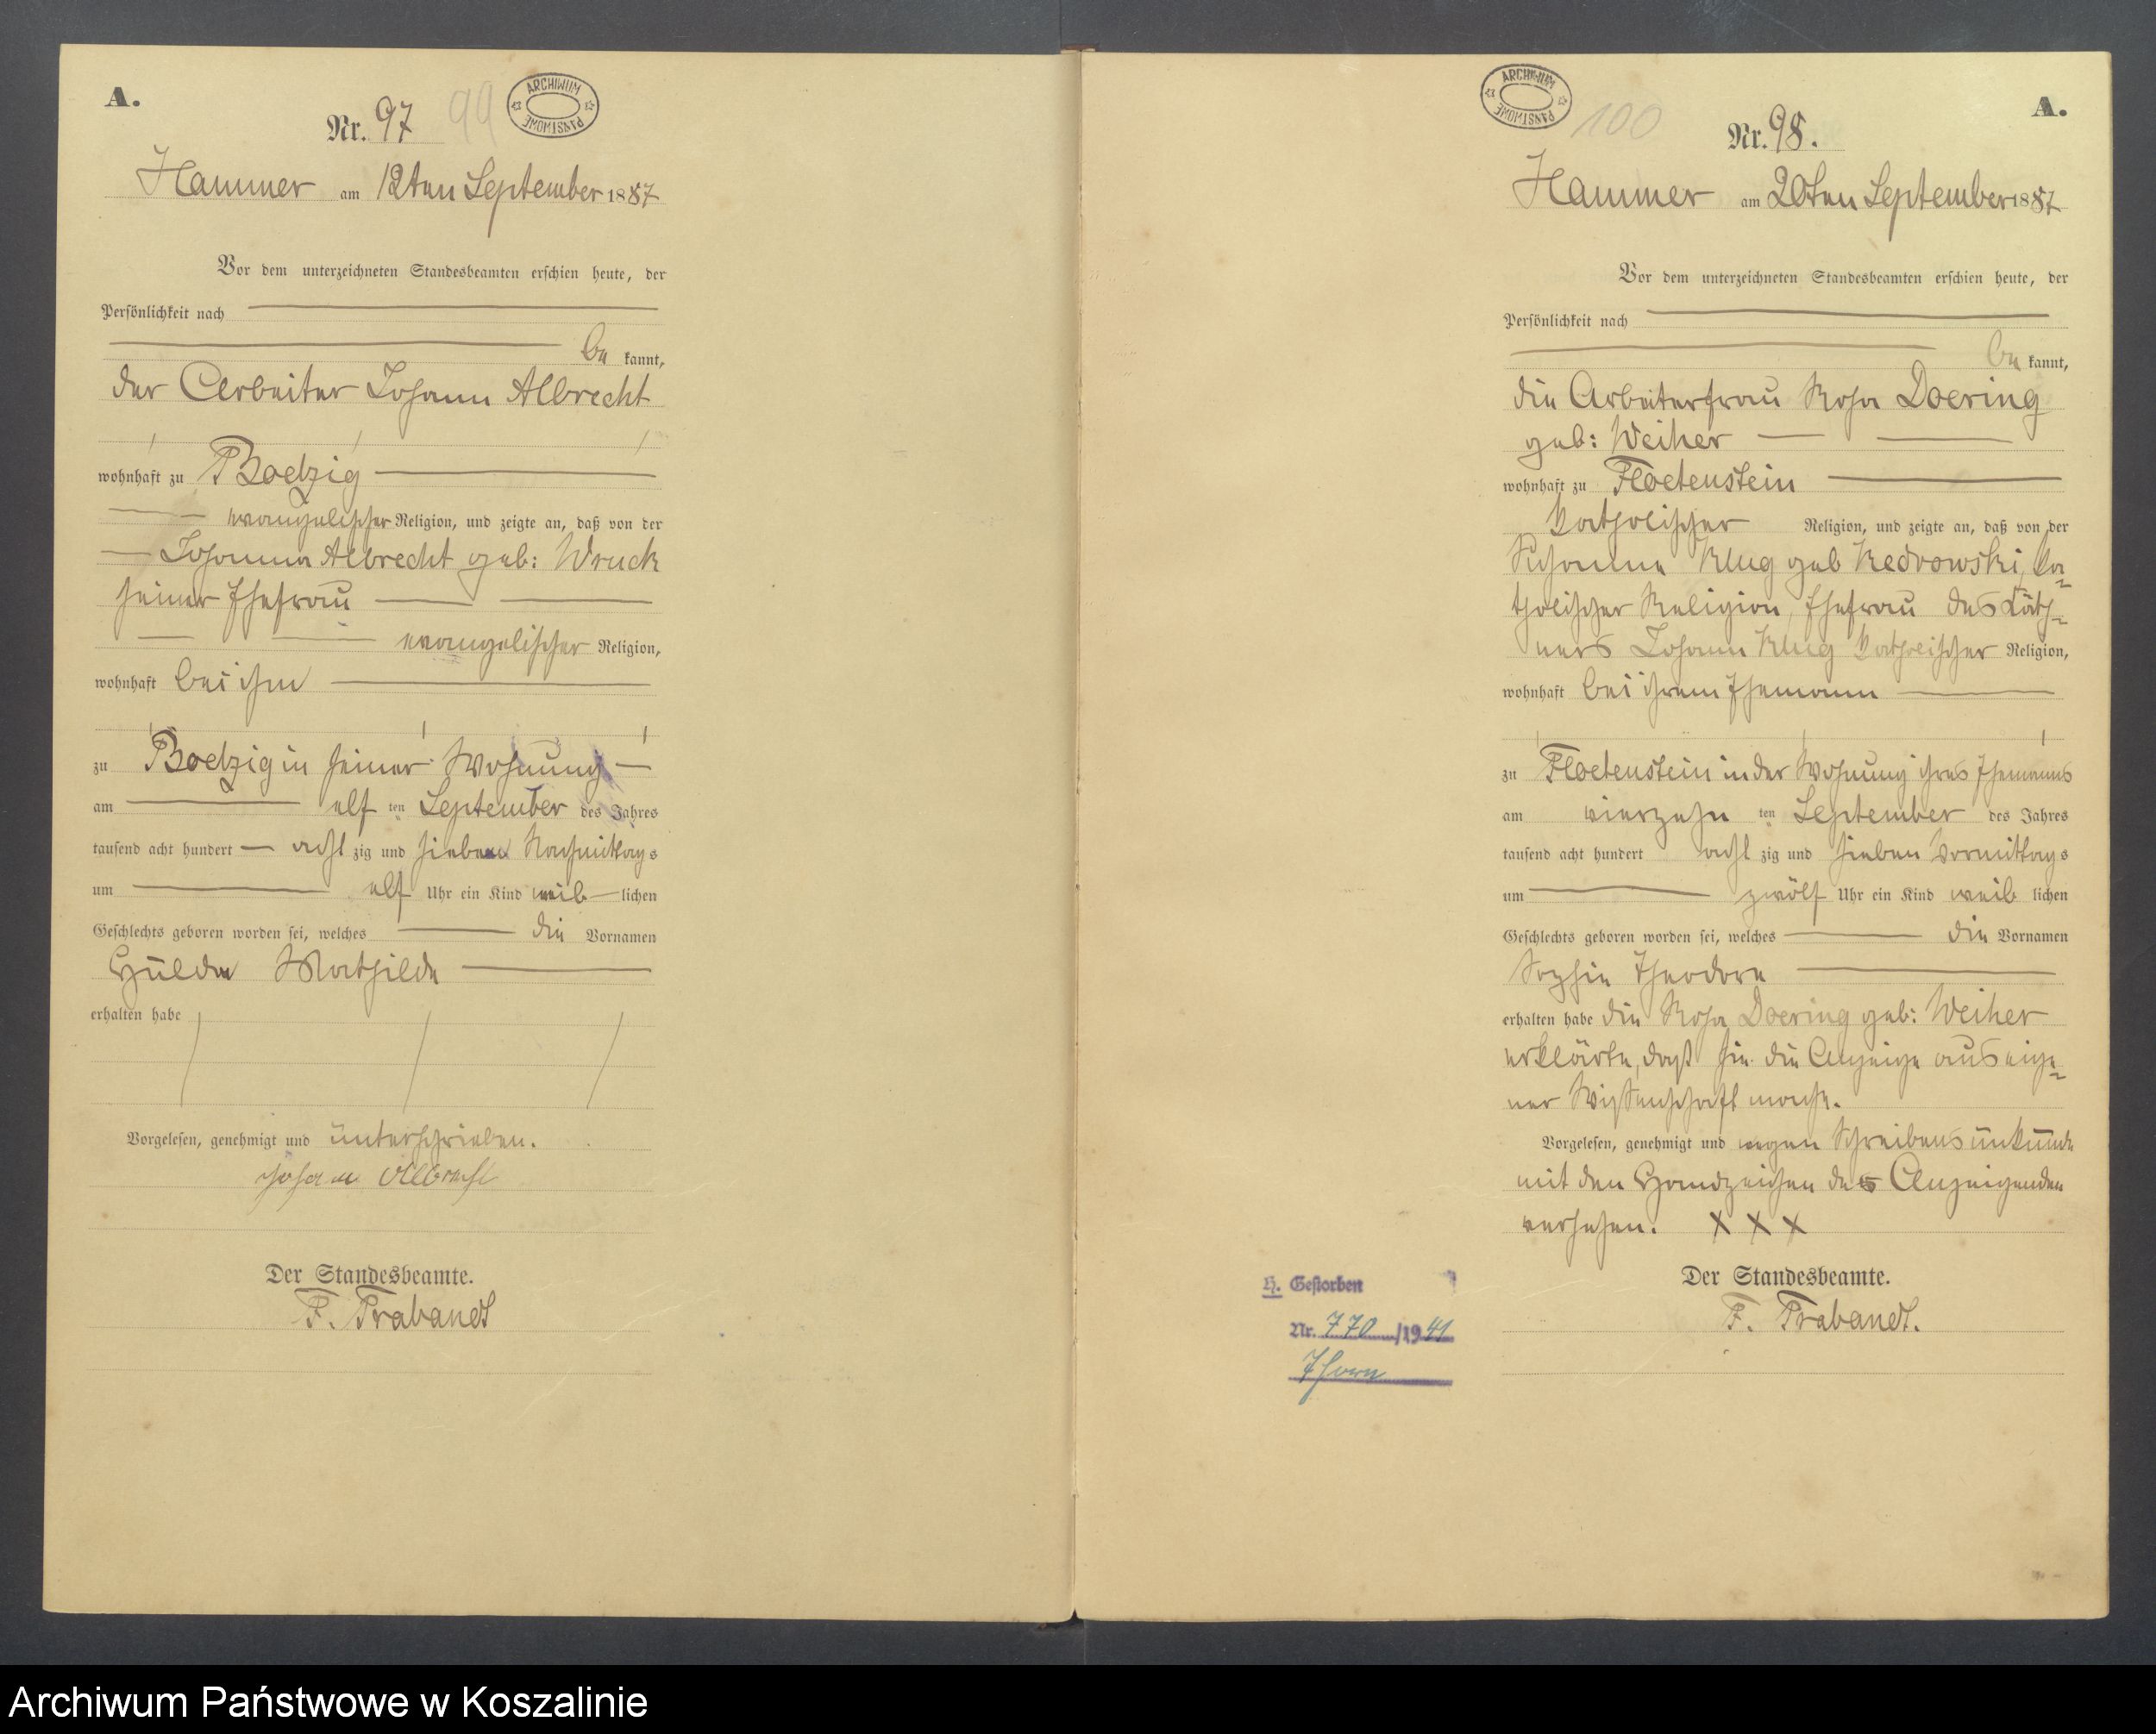 A.
Nr. 97 99
ARCHIWUM PAŃSTWOWE
Hammer am 12ten September 1887
Vor dem unterzeichneten Standesbeamten erschien heute, der
Persönlichkeit nach
be kannt,
der Arbeiter Johann Albrecht
wohnhaft zu Boelzig
evangelischer Religion, und zeigte an, daß von der
Johanna Albrecht geb: Wruck
seiner Ehefrau
evangelischer Religion,
wohnhaft bei ihm
zu Boelzig in seiner Wohnung
am elf ten September des Jahres
tausend acht hundert acht zig und sieben Nachmittags
um elf Uhr ein Kind weib lichen
Geschlechts geboren worden sei, welches die Vornamen
Hulda Mathilde
erhalten habe
Vorgelesen, genehmigt und unterschrieben.
Johann Albrecht
Der Standesbeamte.
F. Trabandt
ARCHIWUM PAŃSTWOWE
100
A.
Nr. 98.
Hammer am 20ten September 1887
Vor dem unterzeichneten Standesbeamten erschien heute, der
Persönlichkeit nach
be kannt,
die Arbeiterfrau Rosa Doering
geb: Weiher
wohnhaft zu Floetenstein
katholischer Religion, und zeigte an, daß von der
Susanna Klug geb Kedrowski, ka=
tholischer Religion, Ehefrau des Käth=
ners Johann Klug katholischer Religion,
wohnhaft bei ihrem Ehemann
zu Floetenstein in der Wohnung ihres Ehemanns
am vierzehn ten September des Jahres
tausend acht hundert acht zig und sieben Vormittags
um zwölf Uhr ein Kind weib lichen
Geschlechts geboren worden sei, welches die Vornamen
Sophie Theodore
erhalten habe die Rosa Doering geb: Weiher
erklärte, daß sie die Anzeige aus eige=
ner Wissenschaft mache.
Vorgelesen, genehmigt und wegen Schreibensunkunde
mit den Handzeichen des Anzeigenden
versehen. X X X
Der Standesbeamte.
F. Trabandt.
H. Gestorben
Nr. 770/1941
Thorn
Archiwum Państwowe w Koszalinie